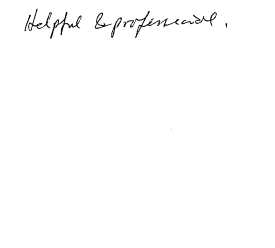 Helpful & professional.